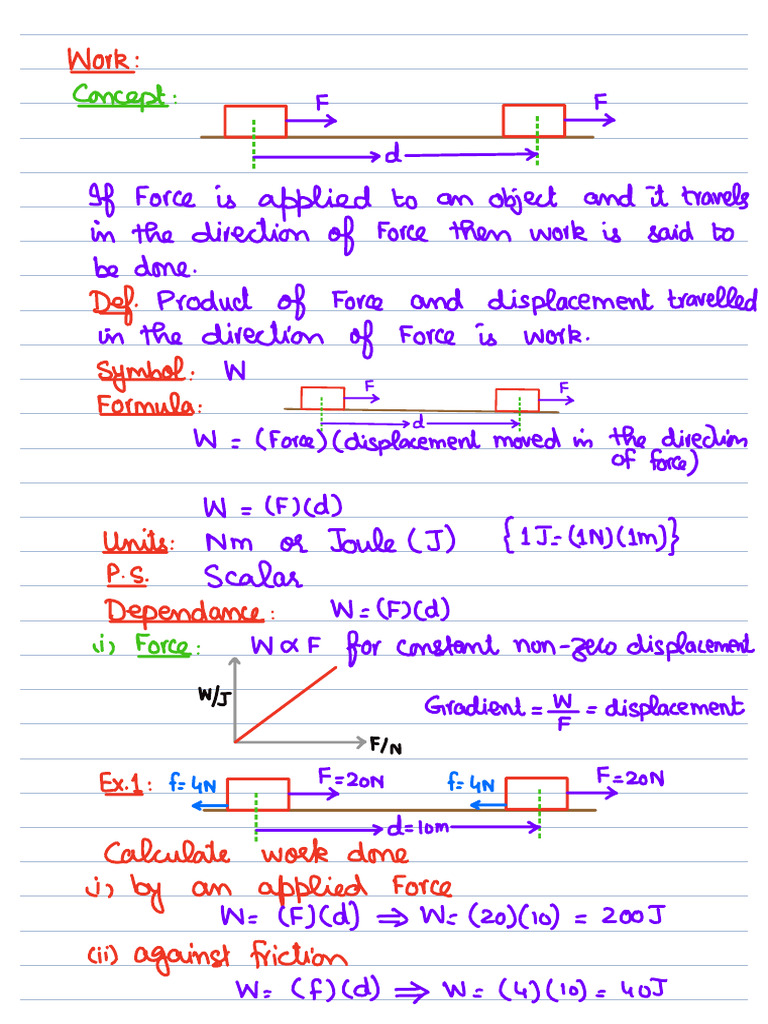 Work:
Concept:
F F
d
If Force is applied to an object and it travels
in the direction of Force then work is said to
be done.
Def. Product of Force and displacement travelled
in the direction of Force is work.
Symbol: W
Formula:
F F
d
W = (Force)(displacement moved in the direction
of force)
W = (F)(d)
Units: Nm or Joule (J) {1J=(1N)(1m)}
P.S. Scalar
Dependance: W=(F)(d)
(i) Force: W ∝ F for constant non-zero displacement
W/J
Gradient = W/F = displacement
F/N
Ex.1: f=4N F=20N f=4N F=20N
d=10m
Calculate work done
(i) by an applied Force
W= (F)(d) ⇒ W= (20)(10) = 200J
(ii) against friction
W= (f)(d) ⇒ W= (4)(10) = 40J